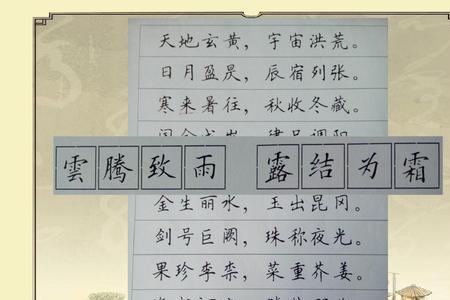 天地玄黄，宇宙洪荒。
日月盈昃，辰宿列张。
寒来暑往，秋收冬藏。
雲腾致雨 露结为霜
金生丽水，玉出昆冈。
剑号巨阙，珠称夜光。
果珍李柰，菜重芥姜。